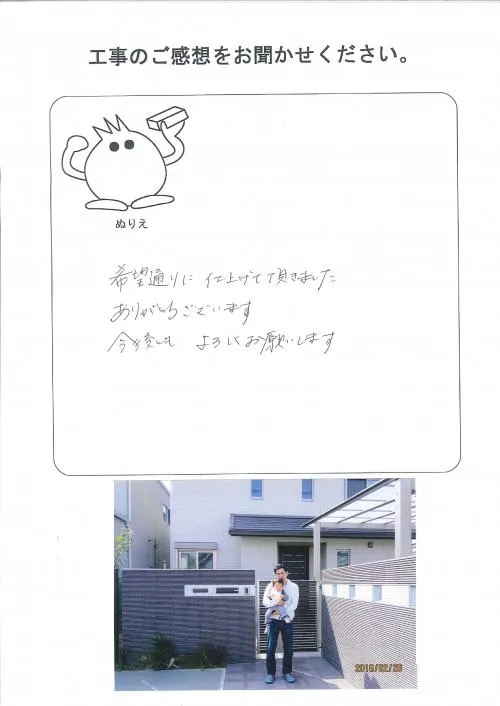 工事のご感想をお聞かせください。
ぬりえ
希望通りに 仕上げて頂きました
ありがとうございます
今後とも よろしくお願いします
2016/02/20